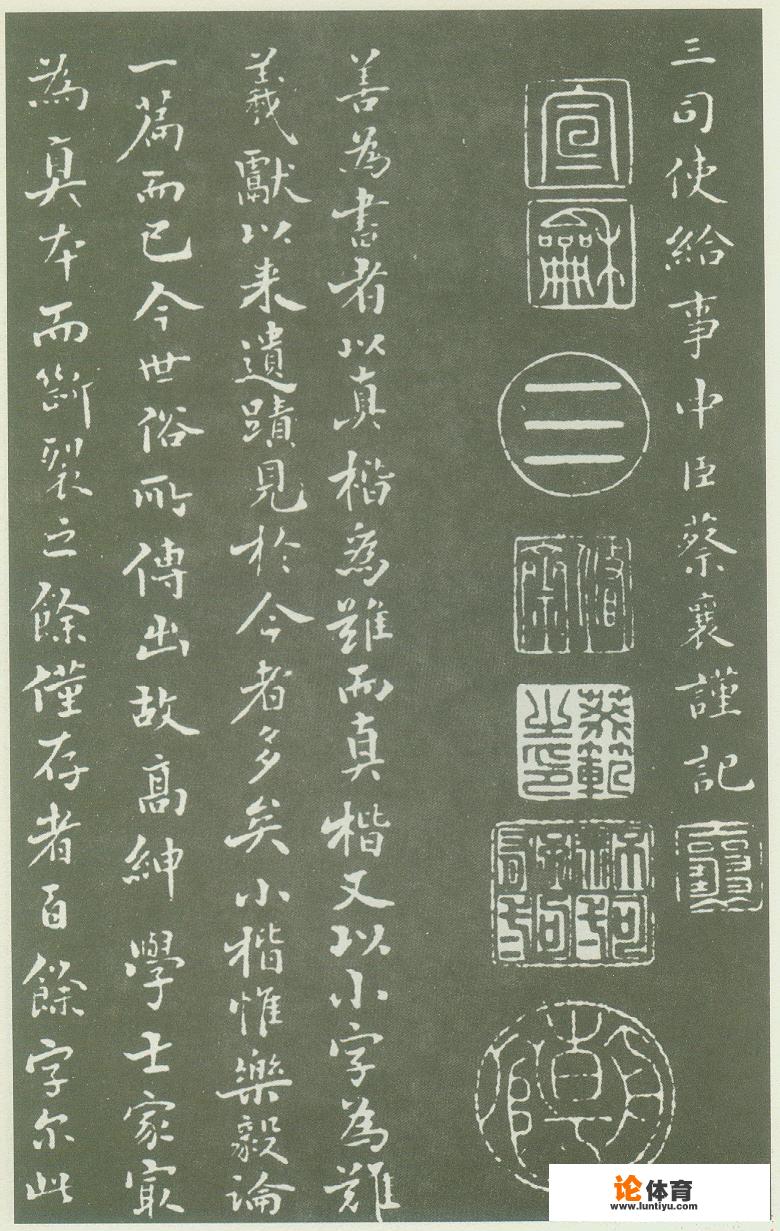 三司使給事中臣蔡襄謹記
宣
龢
三
蔡範之印
善為書者以真楷為難而真楷又以小字為難
羲獻以来遺蹟見於今者多矣小楷惟樂毅論
一篇而已今世俗所傳出故高紳學士家寂
為真本而斷裂之餘僅存者百餘字尔此
论体育
www.luntiyu.com